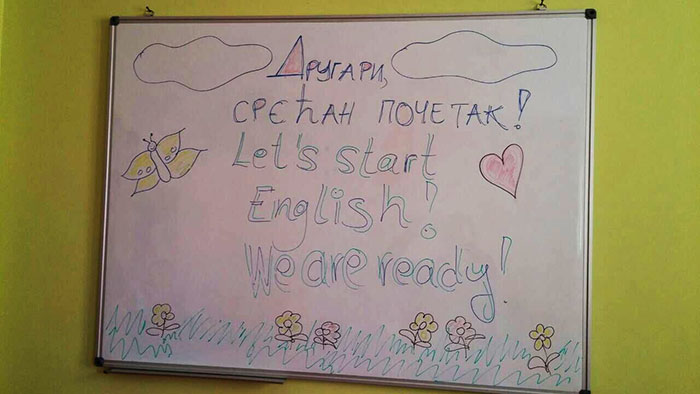 Другари,
СРЕЋАН ПОЧЕТАК!
Let's start
English!
We are ready!